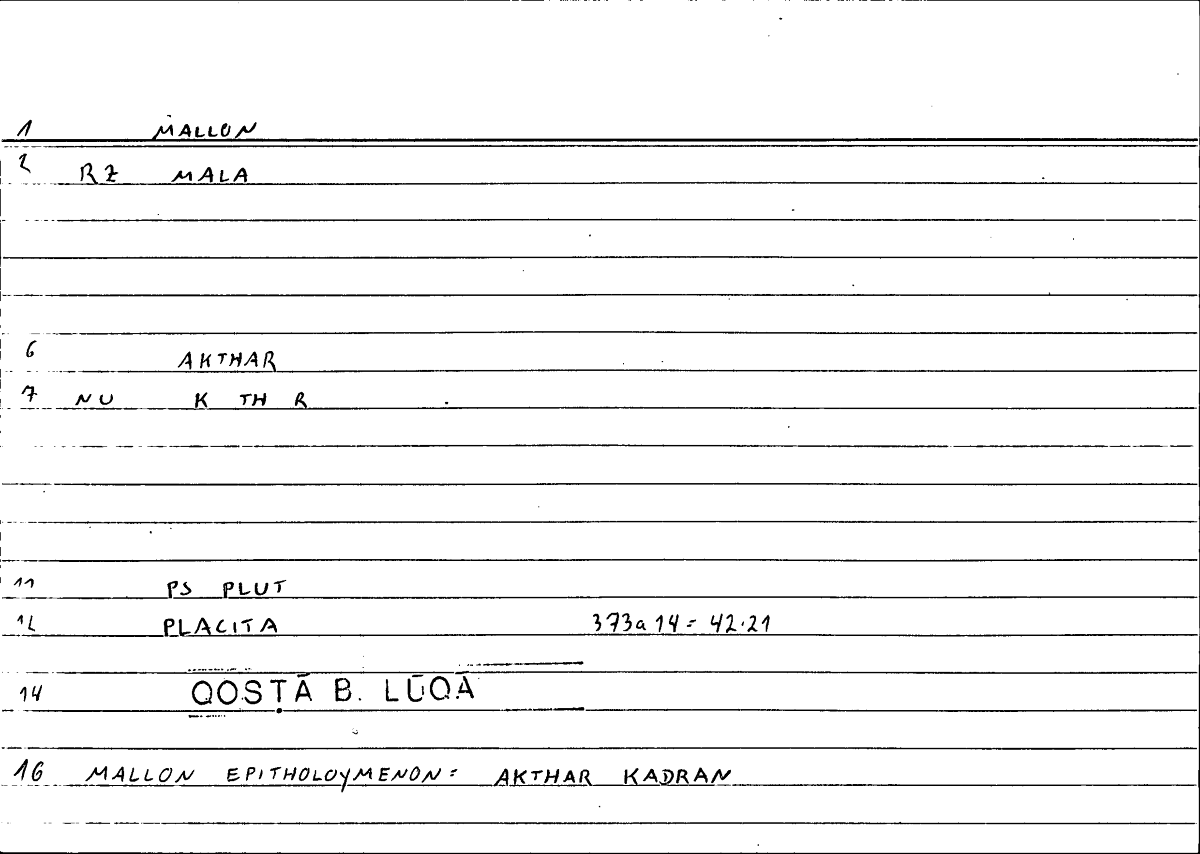 1 MALLON
2 RZ MALA
6 AKTHAR
7 NU K TH R
11 PS PLUT
12 PLACITA 373a14 = 42.21
14 QOSṬĀ B. LŪQĀ
16 MALLON EPITHOLOYMENON = AKTHAR KADRAN